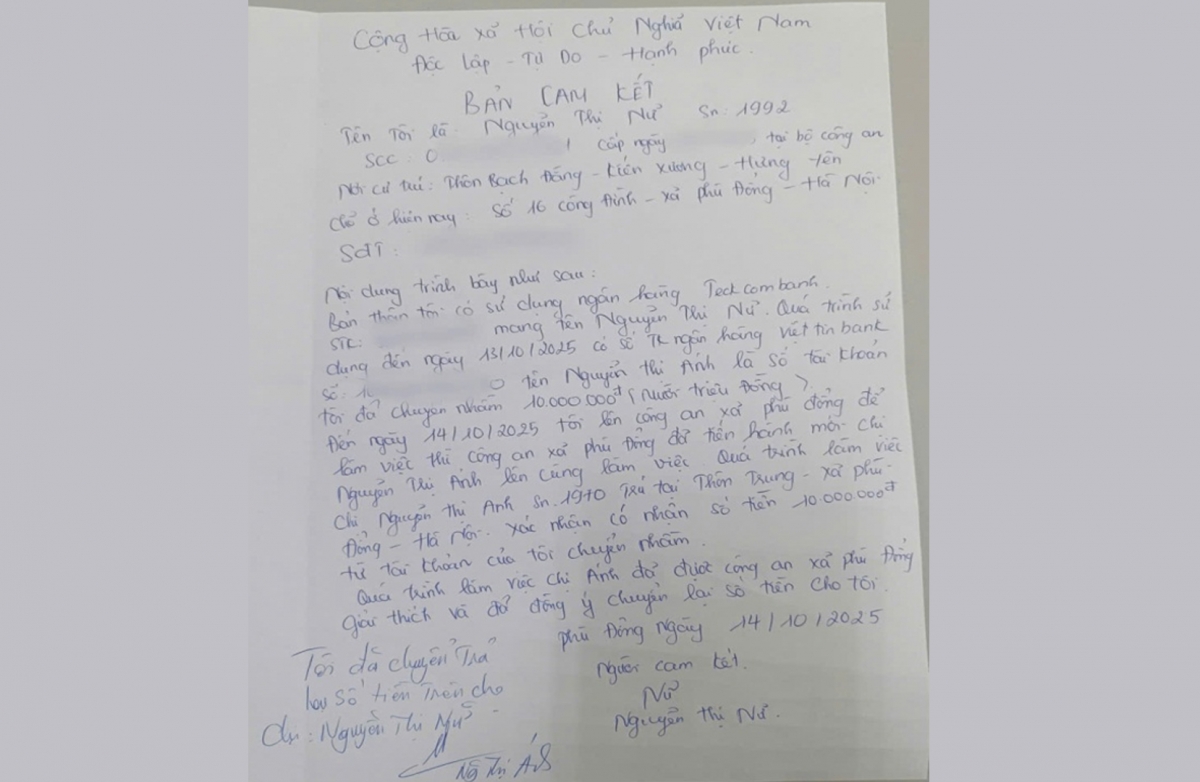 Cộng Hòa Xã Hội Chủ Nghĩa Việt Nam
Độc Lập - Tự Do - Hạnh phúc.
BẢN CAM KẾT
Tên Tôi là: Nguyễn Thị Nữ Sn: 1992
SCC: 0 cấp ngày tại bộ công an
Nơi cư trú: Thôn Bạch Đằng - Kiến Xương - Hưng Yên
Chỗ ở hiện nay: Số 16 công Đình - xã phù Đổng - Hà Nội.
SĐT:
Nội dung trình bày như sau:
Bản thân tôi có sử dụng ngân hàng Teckcombank.
STK: mang tên Nguyễn Thị Nữ. Quá trình sử
dụng đến ngày 13/10/2025 có số TK ngân hàng việt tin bank
số: 10 0 tên Nguyễn thị Ánh là số tài khoản
tôi đã chuyển nhầm 10.000.000đ (Mười triệu Đồng).
Đến ngày 14/10/2025 tôi lên công an xã phù Đổng để
làm việc thì công an xã phù Đổng đã tiến hành mời chị
Nguyễn Thị Ánh lên cùng làm việc. Quá trình làm việc
chị Nguyễn thị Anh Sn.1970 Trú tại Thôn Trung - xã phù
Đổng - Hà Nội. xác nhận có nhận số tiền 10.000.000đ
từ tài khoản của tôi chuyển nhầm.
Quá trình làm việc chị Ánh đã được công an xã phù Đổng
giải thích và đã đồng ý chuyển lại số tiền cho tôi.
phù Đổng Ngày 14/10/2025
Người cam kết.
Nữ
Nguyễn thị Nữ.
Tôi đã chuyển Trả
lại Số tiền Trên cho
chị: Nguyễn Thị Nữ
Ng Thị Ánh